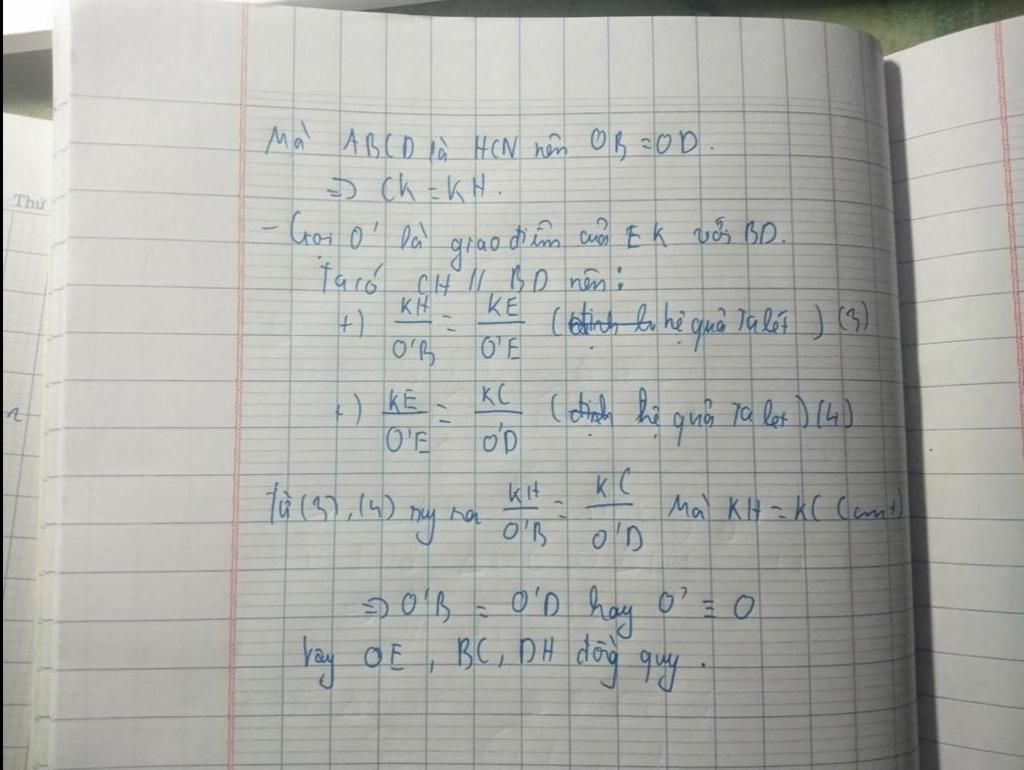 Thứ
Mà ABCD là HCN nên OB = OD.
=> CK = KH.
- Gọi O' là giao điểm của EK với BD.
Ta có CH // BD nên:
+) KH/O'B = KE/O'E (hệ quả Ta lét) (3)
+) KE/O'E = KC/O'D (hệ quả Ta let) (4)
Từ (3), (4) suy ra KH/O'B = KC/O'D Mà KH = KC (cmt)
=> O'B = O'D hay O' ≡ O
Vậy OE, BC, DH đồng quy.